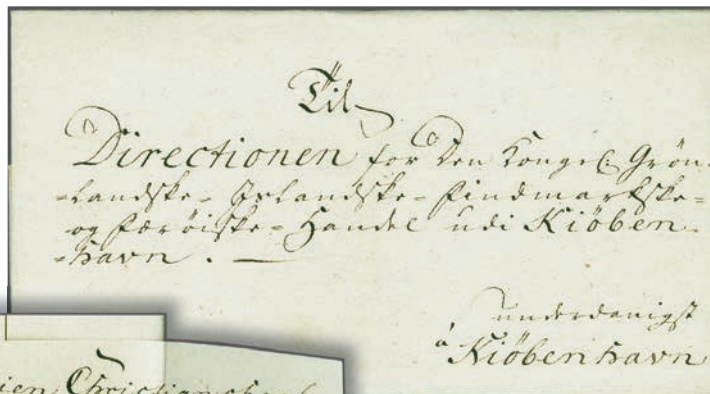 Til
Directionen for Den Kongel: Grön-
-landske- Islandske- Findmarkske-
og Færøiske- Handel udi Kiöben-
-havn. —
underdanigst
á Kiöbenhavn
Christians